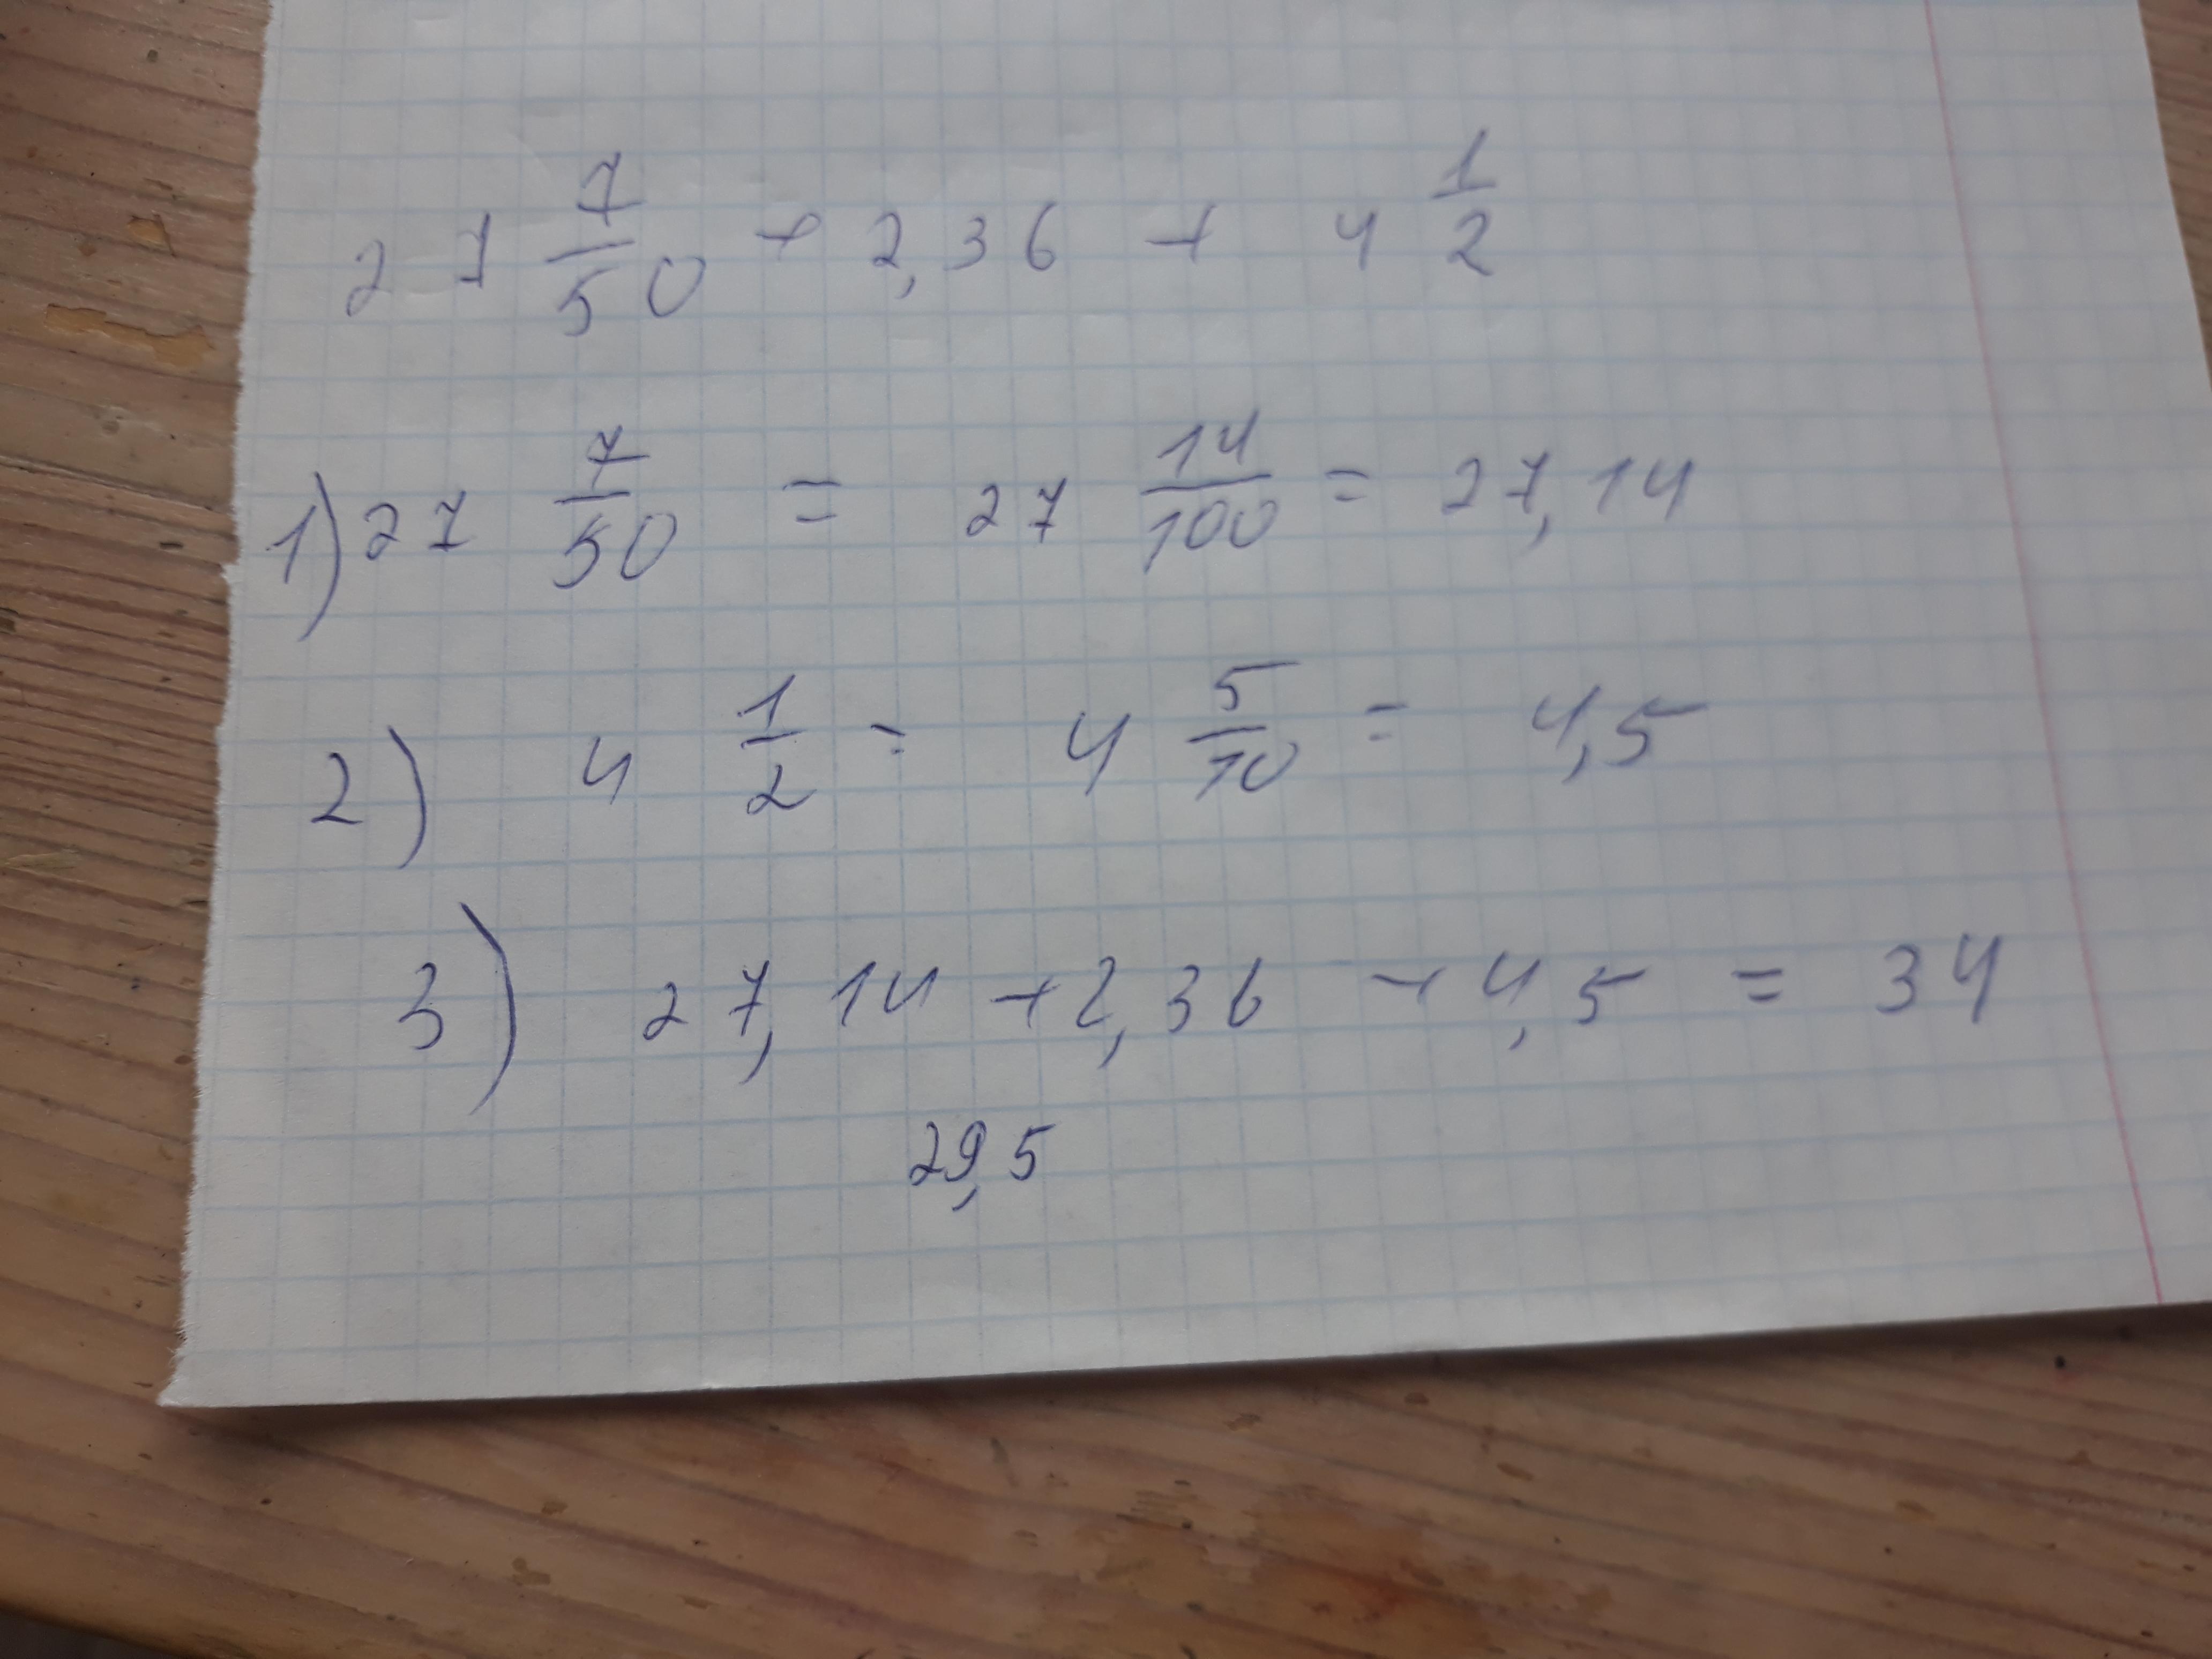 27 7/50 + 2,36 + 4 1/2
1) 27 7/50 = 27 14/100 = 27,14
2) 4 1/2 = 4 5/10 = 4,5
3) 27,14 + 2,36 + 4,5 = 34
29,5